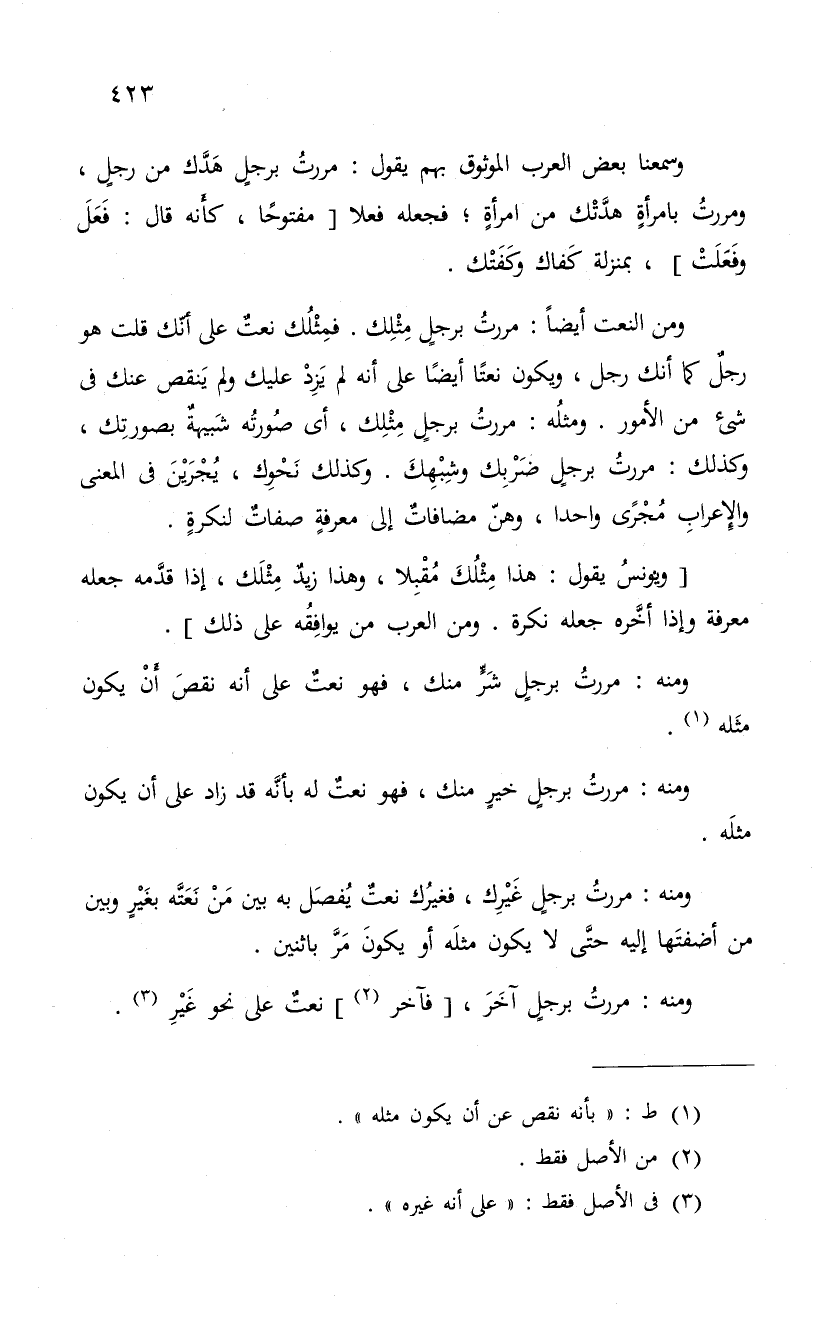 ٤٢٣
وسمعنا بعض العرب الموثوق بهم يقول : مررتُ برجلٍ هَدَّك من رجلٍ ،
ومررتُ بامرأةٍ هدَّتْك من امرأةٍ ؛ فجعله فعلا [ مفتوحًا ، كأَنه قال : فَعَلَ
وفَعَلَتْ ] ، بمنزلة كَفاك وكَفَتْك .
ومن النعت أيضاً : مررتُ برجلٍ مِثْلِك . فمِثْلُك نعتٌ على أنّك قلت هو
رجلٌ كما أنك رجل ، ويكون نعتًا أيضًا على أنه لم يَزِدْ عليك ولم يَنقص عنك فى
شىء من الأمور . ومثلُه : مررتُ برجلٍ مِثْلِك ، أى صُورتُه شَبيهةٌ بصورتِك ،
وكذلك : مررتُ برجلٍ ضَرْبِك وشِبْهِكَ . وكذلك نَحْوِك ، يُجْرَيْنَ فى المعنى
والإعرابِ مُجْرًى واحدا ، وهنّ مضافاتٌ إلى معرفةٍ صفاتٌ لنكرةٍ .
[ ويونسُ يقول : هذا مِثْلُكَ مُقْبِلا ، وهذا زيدٌ مِثْلَك ، إذا قدَّمه جعله
معرفة وإذا أخَّره جعله نكرة . ومن العرب من يوافِقُه على ذلك ] .
ومنه : مررتُ برجلٍ شَرٍّ منك ، فهو نعتٌ على أنه نقصَ أَنْ يكون
مثَله (١) .
ومنه : مررتُ برجلٍ خيرٍ منك ، فهو نعتٌ له بأنَّه قد زاد على أن يكون
مثلَه .
ومنه : مررتُ برجلٍ غَيْرِك ، فغيرُك نعتٌ يُفصَل به بين مَنْ نَعَتَّه بغَيْرٍ وبين
من أضفتَها إليه حتَّى لا يكون مثلَه أو يكونَ مَرَّ باثنين .
ومنه : مررتُ برجلٍ آخَرَ ، [ فآخر (٢) ] نعتٌ على نحو غَيْرِ (٣) .
(١) ط : « بأنه نقص عن أن يكون مثله » .
(٢) من الأصل فقط .
(٣) فى الأصل فقط : « على أنه غيره » .